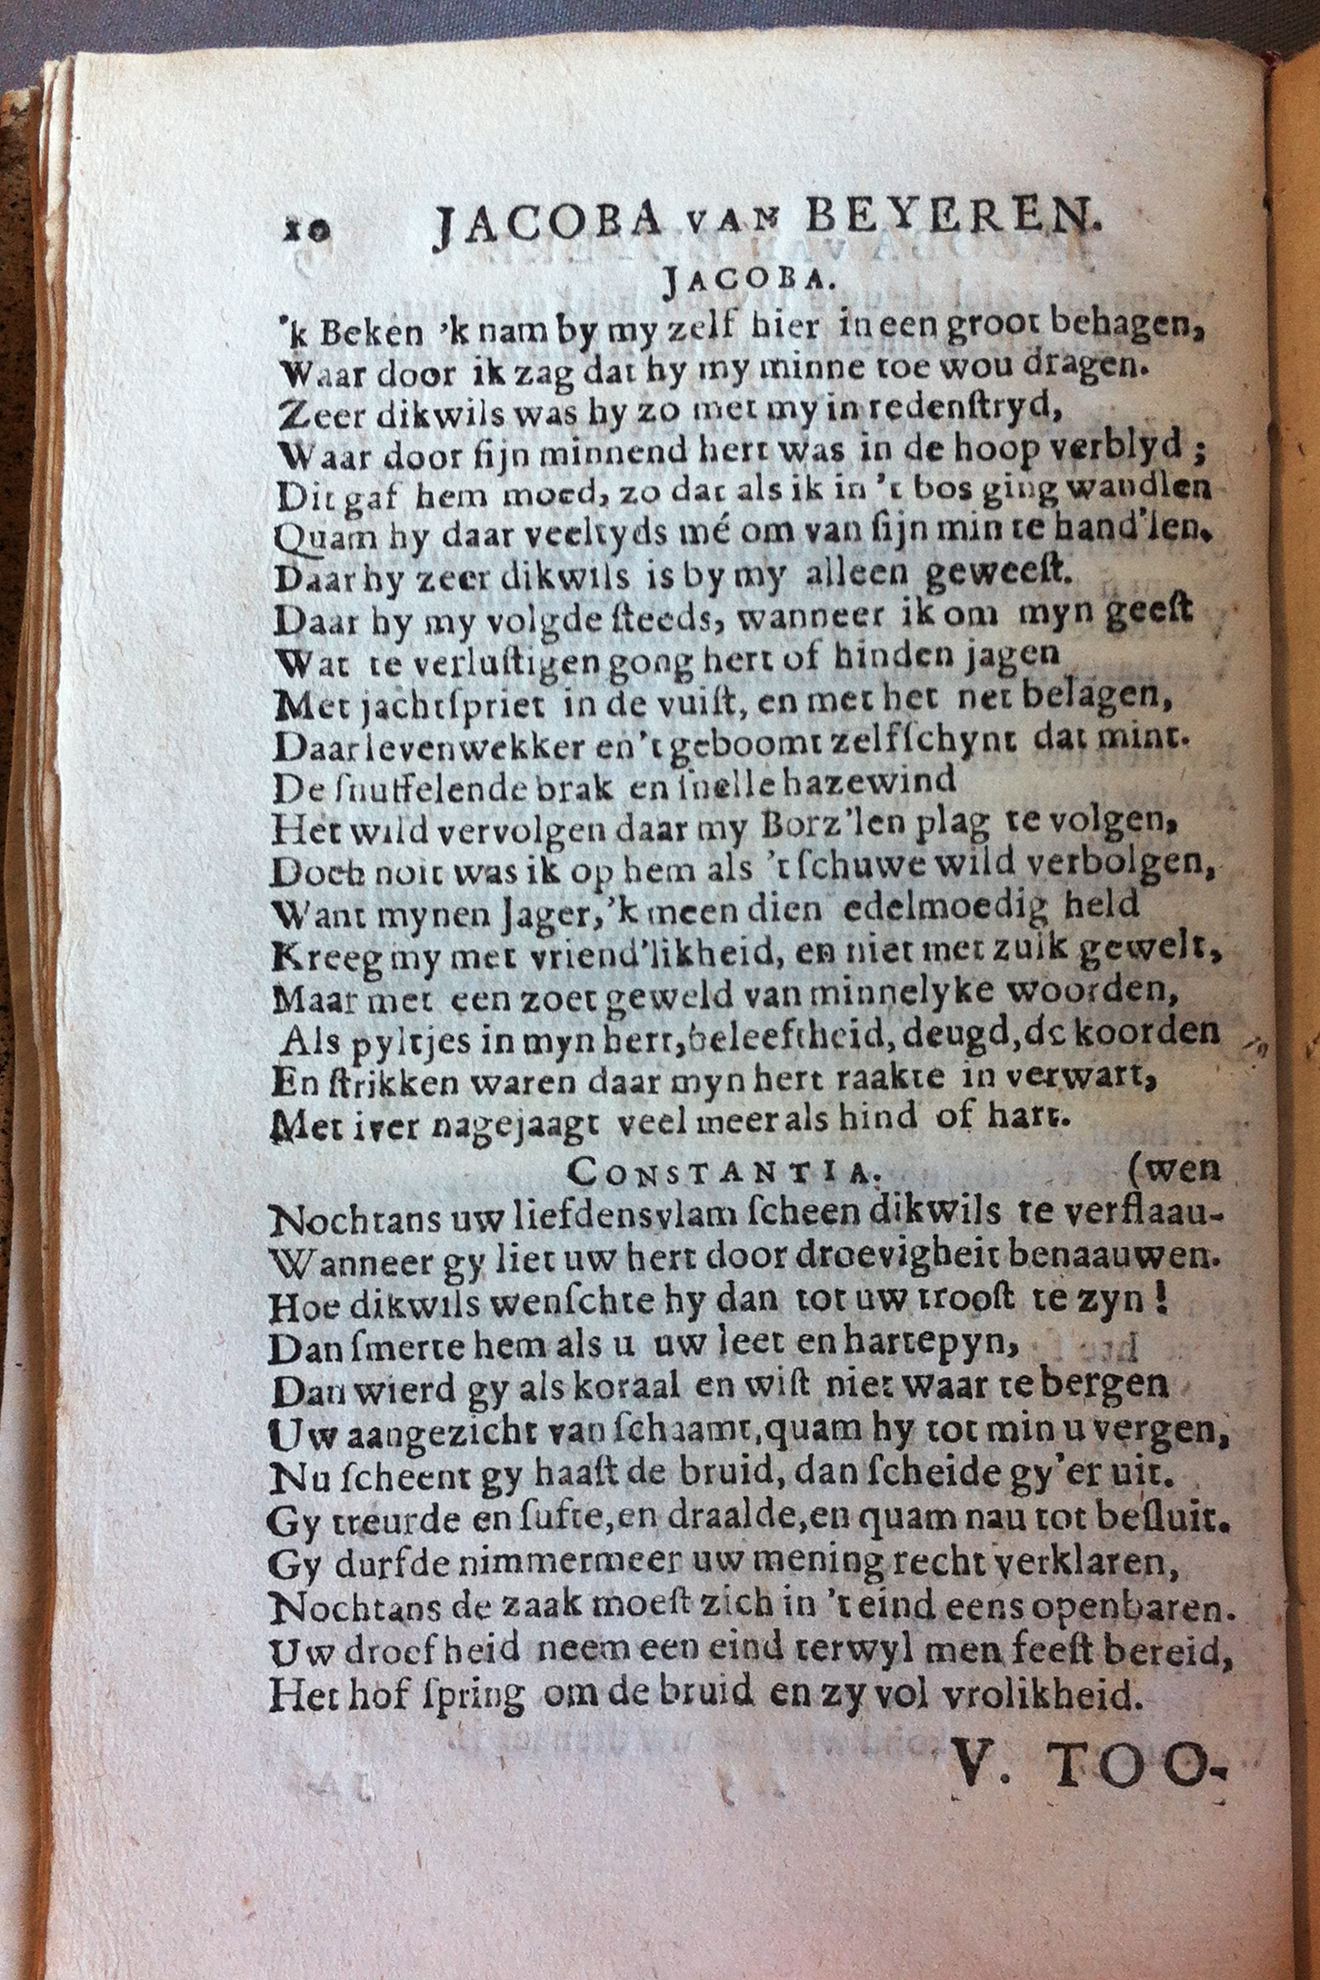 10 JACOBA VAN BEYEREN.
JACOBA.
'k Beken 'k nam by my zelf hier in een groot behagen,
Waar door ik zag dat hy my minne toe wou dragen.
Zeer dikwils was hy zo met my in redenſtryd,
Waar door ſijn minnend hert was in de hoop verblyd;
Dit gaf hem moed, zo dat als ik in 't bos ging wandlen
Quam hy daar veeltyds mé om van ſijn min te hand'len.
Daar hy zeer dikwils is by my alleen geweeſt.
Daar hy my volgde ſteeds, wanneer ik om myn geeſt
Wat te verluſtigen gong hert of hinden jagen
Met jachtſpriet in de vuiſt, en met het net belagen,
Daar levenwekker en 't geboomt zelf ſchynt dat mint.
De ſnuffelende brak en ſnelle hazewind
Het wild vervolgen daar my Borz'len plag te volgen,
Doch noit was ik op hem als 't ſchuwe wild verbolgen,
Want mynen Jager, 'k meen dien edelmoedig held
Kreeg my met vriend'likheid, en niet met zulk gewelt,
Maar met een zoet geweld van minnelyke woorden,
Als pyltjes in myn hert, beleeftheid, deugd, de koorden
En ſtrikken waren daar myn hert raakte in verwart,
Met iver nagejaagt veel meer als hind of hart.
CONSTANTIA. (wen
Nochtans uw liefdensvlam ſcheen dikwils te verflaau-
Wanneer gy liet uw hert door droevigheit benaauwen.
Hoe dikwils wenſchte hy dan tot uw trooſt te zyn!
Dan ſmerte hem als u uw leet en hartepyn,
Dan wierd gy als koraal en wiſt niet waar te bergen
Uw aangezicht van ſchaamt, quam hy tot min u vergen,
Nu ſcheent gy haaſt de bruid, dan ſcheide gy 'er uit.
Gy treurde en ſufte, en draalde, en quam nau tot beſluit.
Gy durfde nimmermeer uw mening recht verklaren,
Nochtans de zaak moeſt zich in 't eind eens openbaren.
Uw droefheid neem een eind terwyl men feeſt bereid,
Het hof ſpring om de bruid en zy vol vrolikheid.
V. TOO-